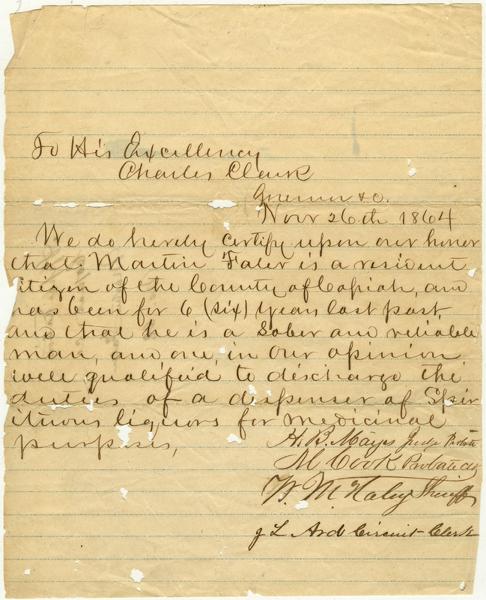 To His Excellency
Charles Clark
Governor &c.
Novr 26th 1864
We do hereby certify upon our honor
that Martin Faler is a resident
citizen of the County of Copiah, and
has been for 6 (six) years last past,
and that he is a Sober and reliable
man, and one, in our opinion
well qualified to discharge the
duties of a dispenser of Spir
ituous liquors for medicinal
purposes,
H. B. Mayes Judge Probate
M Cook Probate Clk
W. M. Haley Sheriff
J L Ard Circuit Clerk